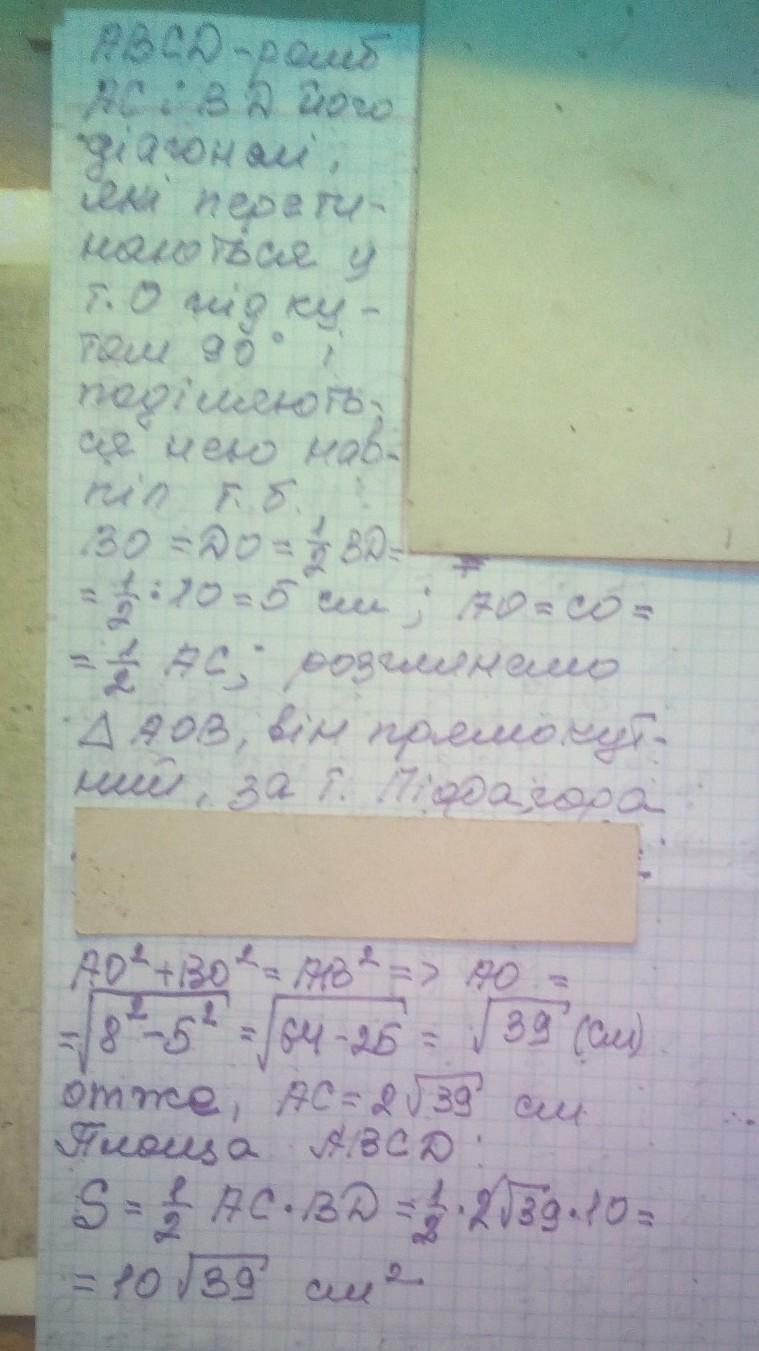 ABCD-ромб
AC і BD його
діагоналі,
які перети-
наються у
т. O під ку-
том 90° і
поділяють-
ся нею нав-
піл т. б.
BO = DO = 1/2 BD =
= 1/2 · 10 = 5 см; AO = CO =
= 1/2 AC; розглянемо
△ AOB, він прямокут-
ний, за т. Піфагора
AO² + BO² = AB² => AO =
= √(8² - 5²) = √(64 - 25) = √39 (см)
отже, AC = 2√39 см
Площа ABCD:
S = 1/2 AC · BD = 1/2 · 2√39 · 10 =
= 10√39 см²